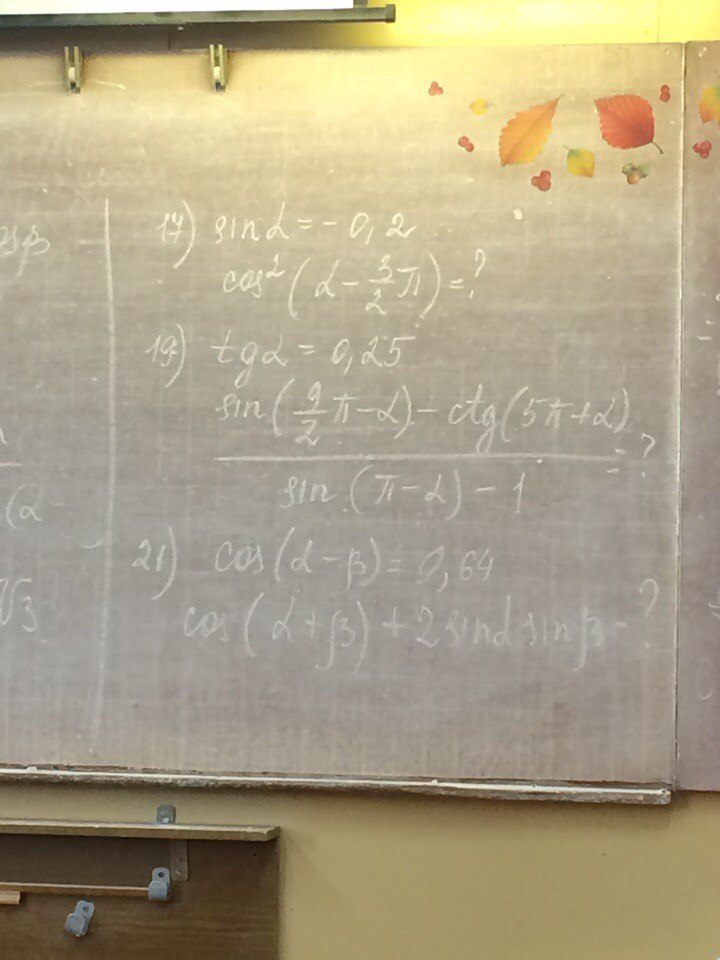 osβ
17) sinα = - 0,2
cos²(α - 3/2 π) = ?
19) tgα = 0,25
sin(9/2 π - α) - ctg(5π + α)
= ?
sin (π - α) - 1
(α
21) cos(α - β) = 0,64
√3
cos(α + β) + 2 sinα sinβ - ?